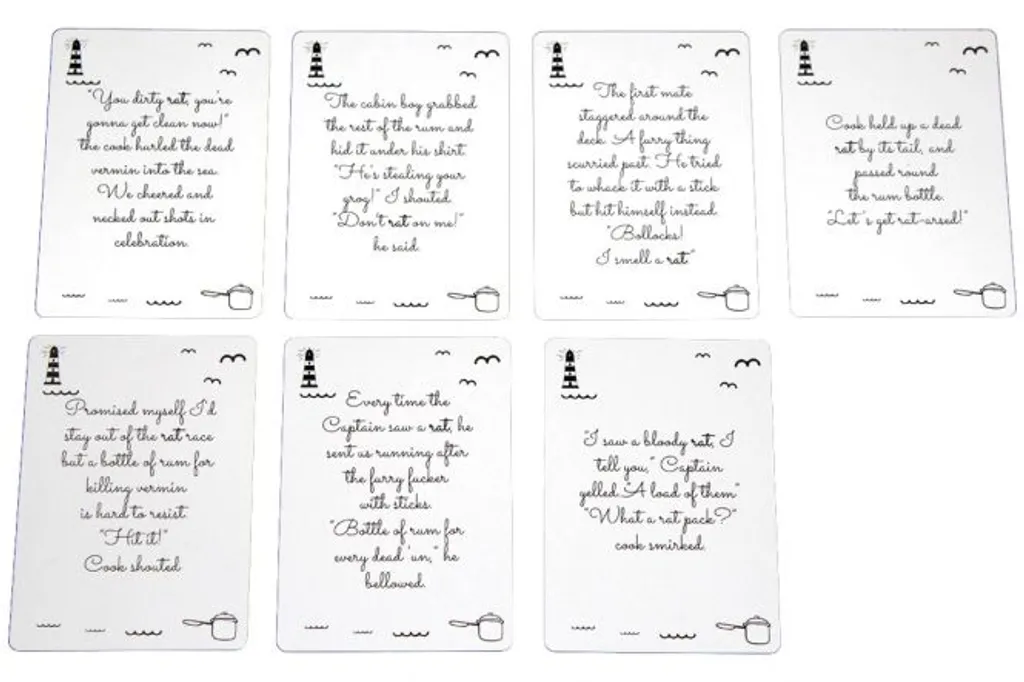 "You dirty rat, you're
gonna get clean now!"
the cook hurled the dead
vermin into the sea.
We cheered and
necked out shots in
celebration.
The cabin boy grabbed
the rest of the rum and
hid it under his shirt.
"He's stealing your
grog!" I shouted.
"Don't rat on me!"
he said.
The first mate
staggered around the
deck. A furry thing
scurried past. He tried
to whack it with a stick
but hit himself instead.
"Bollocks!
I smell a rat."
Cook held up a dead
rat by its tail, and
passed round
the rum bottle.
"Let's get rat-arsed!"
Promised myself I'd
stay out of the rat race
but a bottle of rum for
killing vermin
is hard to resist.
"Hit it!"
Cook shouted
Every time the
Captain saw a rat, he
sent us running after
the furry fucker
with sticks.
"Bottle of rum for
every dead 'un," he
bellowed.
"I saw a bloody rat, I
tell you," Captain
yelled. "A load of them"
"What a rat pack?"
cook smirked.